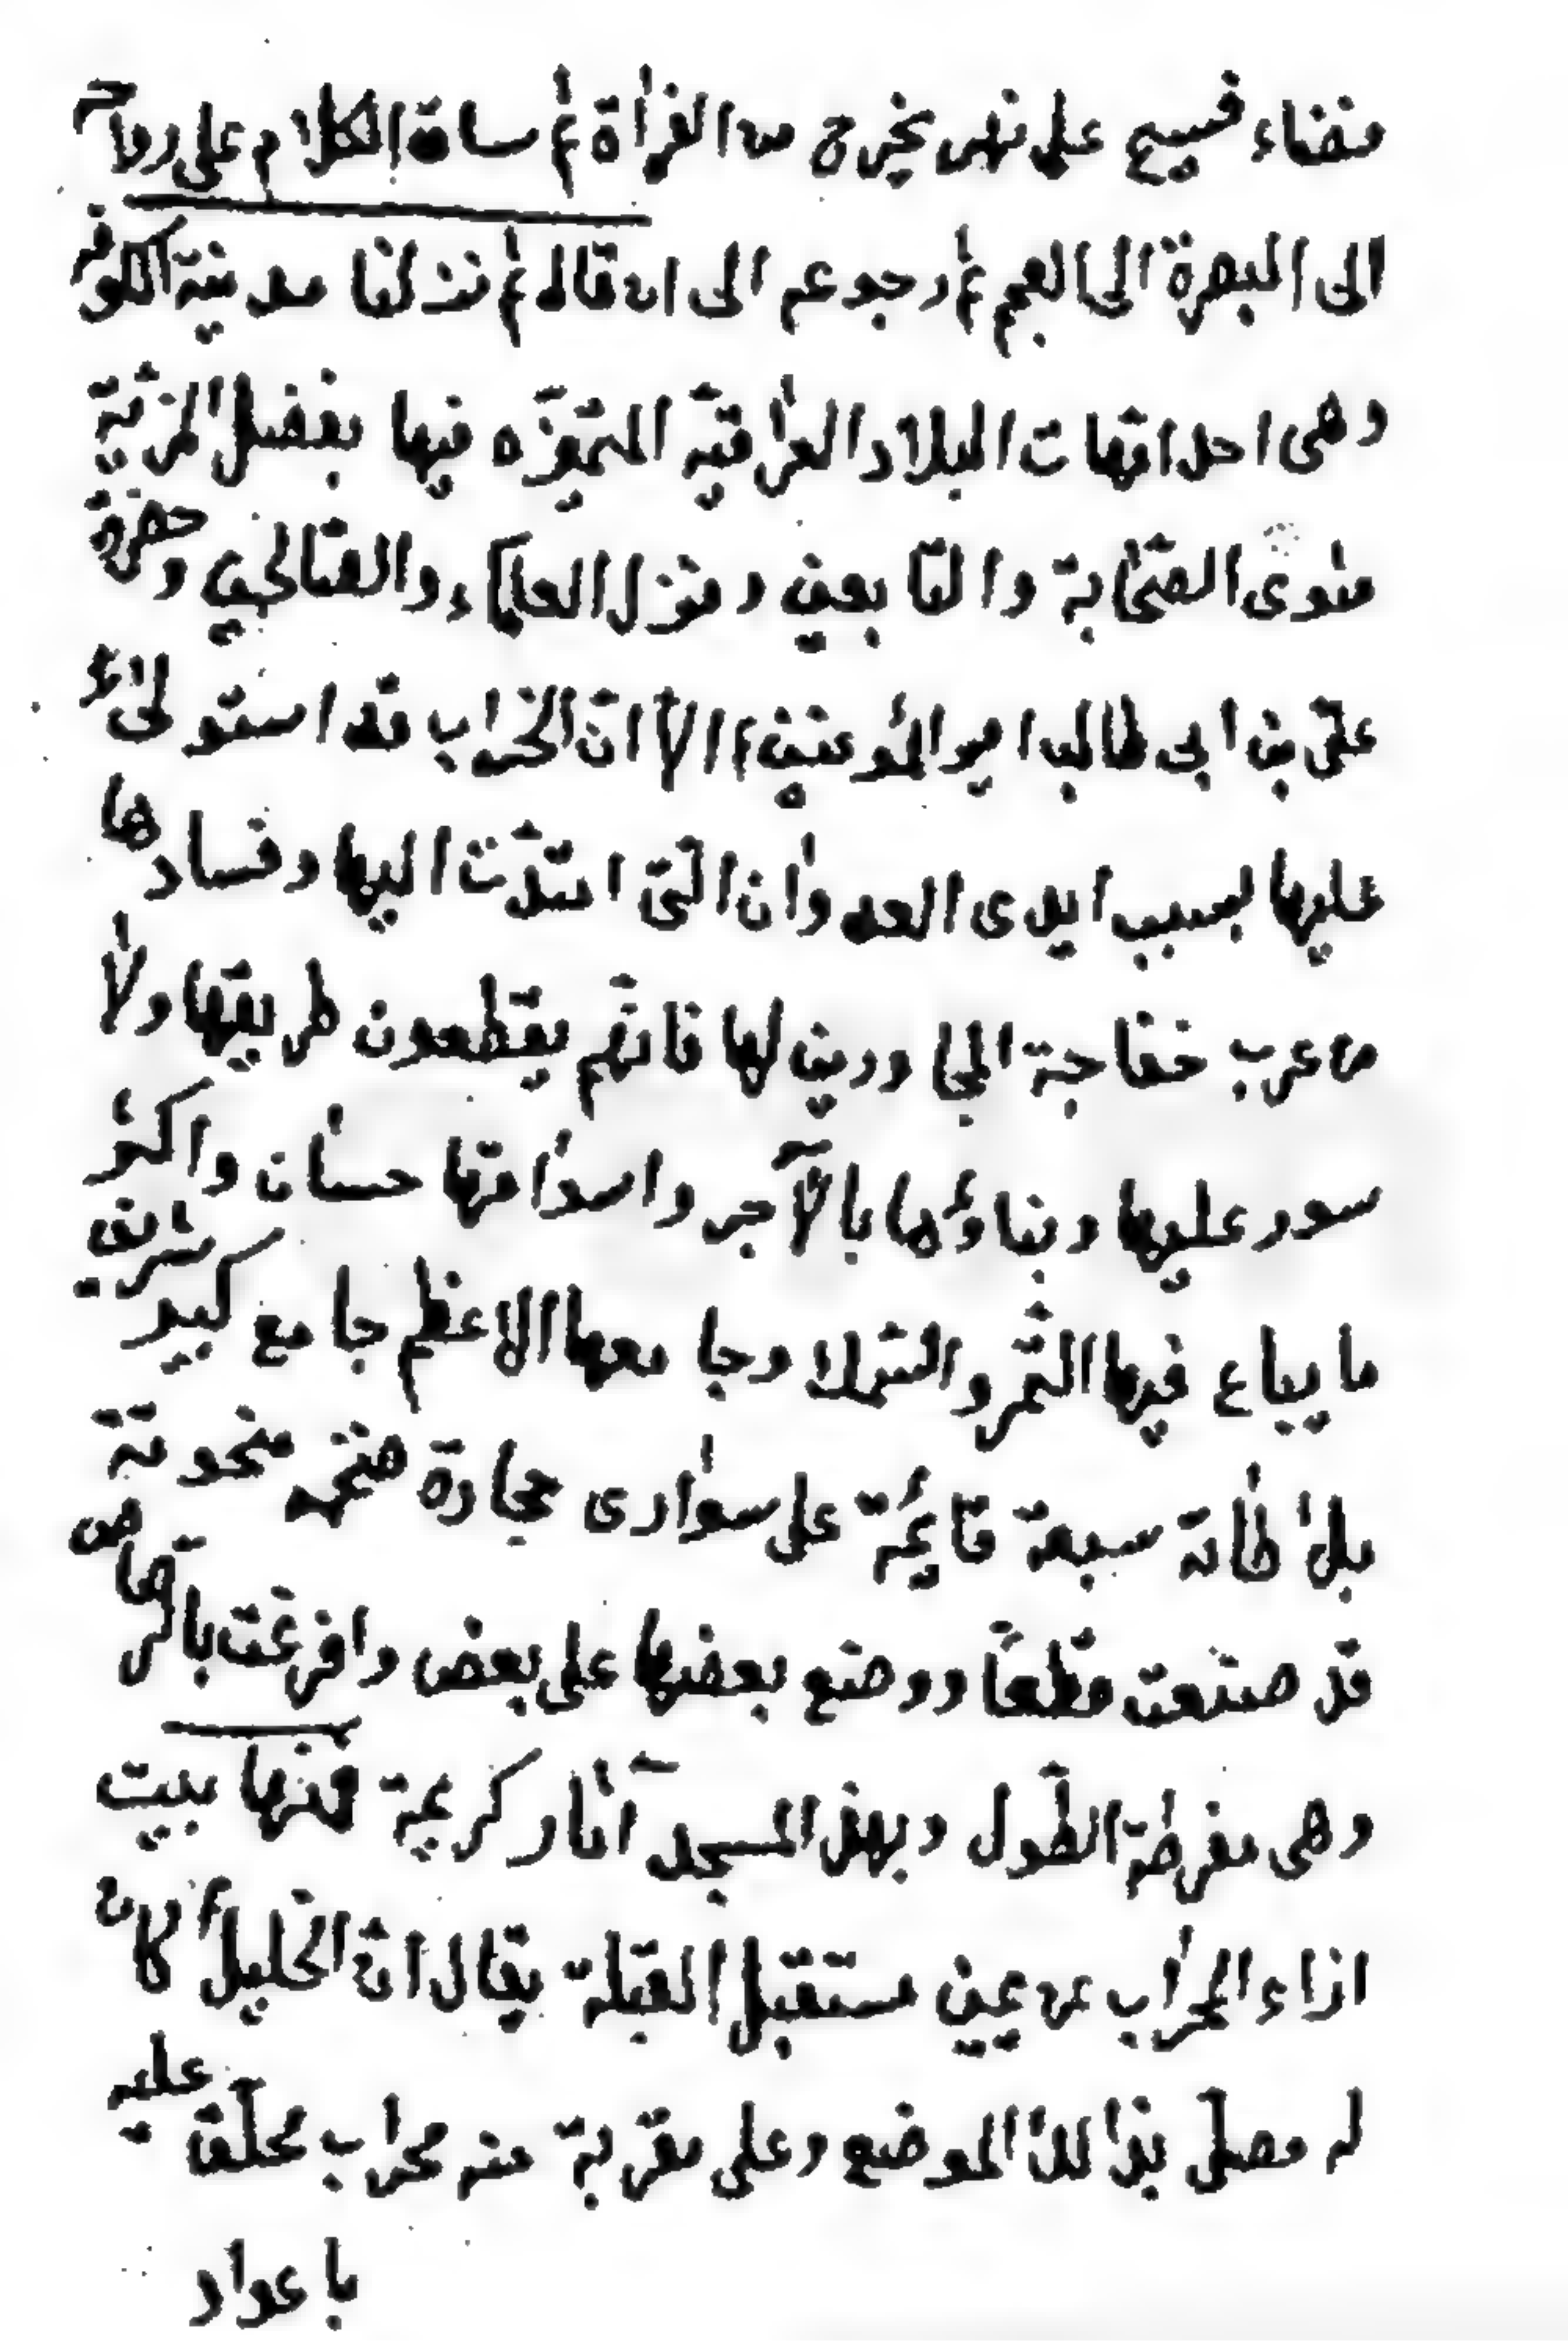 فضاء فسيح على نهر يخرج من الفراة ثم ساق الكلام على رواحه
الى البصرة الى العجم ثم رجوعه الى ان قال ثم نزلنا مدينة الكوفة
وهى احد امّهات البلاد العراقيّة المتميّزه فيها بفضل المزيّة
مثوى الصّحابة والتّابعين ومنزل العلماء والصّالحين وحضرة
علىّ بن ابى طالب امير المؤمنين ؑ الاّ انّ الخراب قد استولى
عليها بسبب ايدى العدوان الّتى امتدّت اليها وفسادها
من عرب خفاجة المجاورين لها فانّهم يقطعون طريقها ولا
سور عليها وبناؤها بالآجر واسواقها حسان واكثر
ما يباع فيها التّمر والسّمك وجامعها الاعظم جامع كبير شريف
بلاطاته سبعة قائمة على سوارى حجارة ضخمه منحوتة
قد صنعت قطعاً ووضع بعضها على بعض وافرغت بالرّصاص
وهى مفرطة الطّول وبهذا المسجد آثار كريمة فمنها بيت
ازاء المحراب عن يمين مستقبل القبلة يقال انّ الخليل ؑ كان
له مصلّى بذالك الموضع وعلى مقربة منه محراب محلّق عليه
باعواد